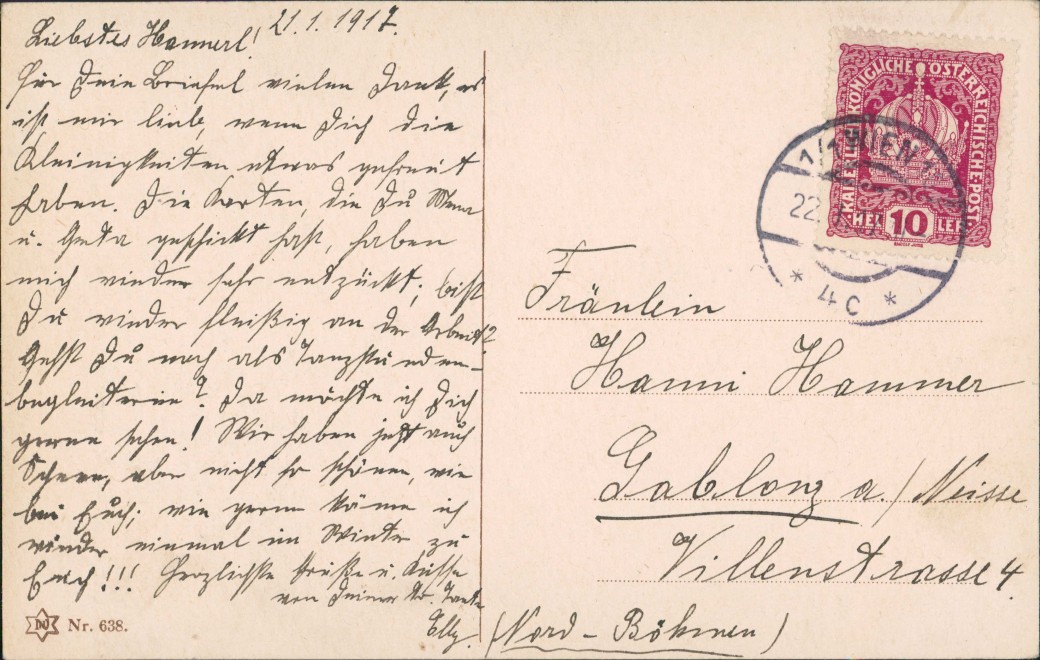 21.1.1917.
Liebstes Hannerl!
Für Dein Brieferl vielen Dank, es
ist mir lieb, wenn Dich die
Kleinigkeiten etwas gefreut
haben. Die Karten, die Du
u. Greta geschickt hast, haben
mich wieder sehr entzückt; bist
Du wieder fleißig an der Arbeit?
Gehst Du noch als Tanzstunden-
begleiterin? Da möchte ich Dich
gerne sehen! Wir haben jetzt auch
Schnee, aber nicht so schönen, wie
bei Euch; wie gerne käme ich
wieder einmal im Winter zu
Euch!!! Herzlichste Grüße u. Küsse
von Deiner Tante
Elly.
Nr. 638.
KAISERLICHE KÖNIGLICHE ÖSTERREICHISCHE POST
HELLER 10
1/1 WIEN 1
22.
* 4c *
Fräulein
Hanni Hammer
Gablonz a./Neisse
Villenstrasse 4.
(Nord-Böhmen)